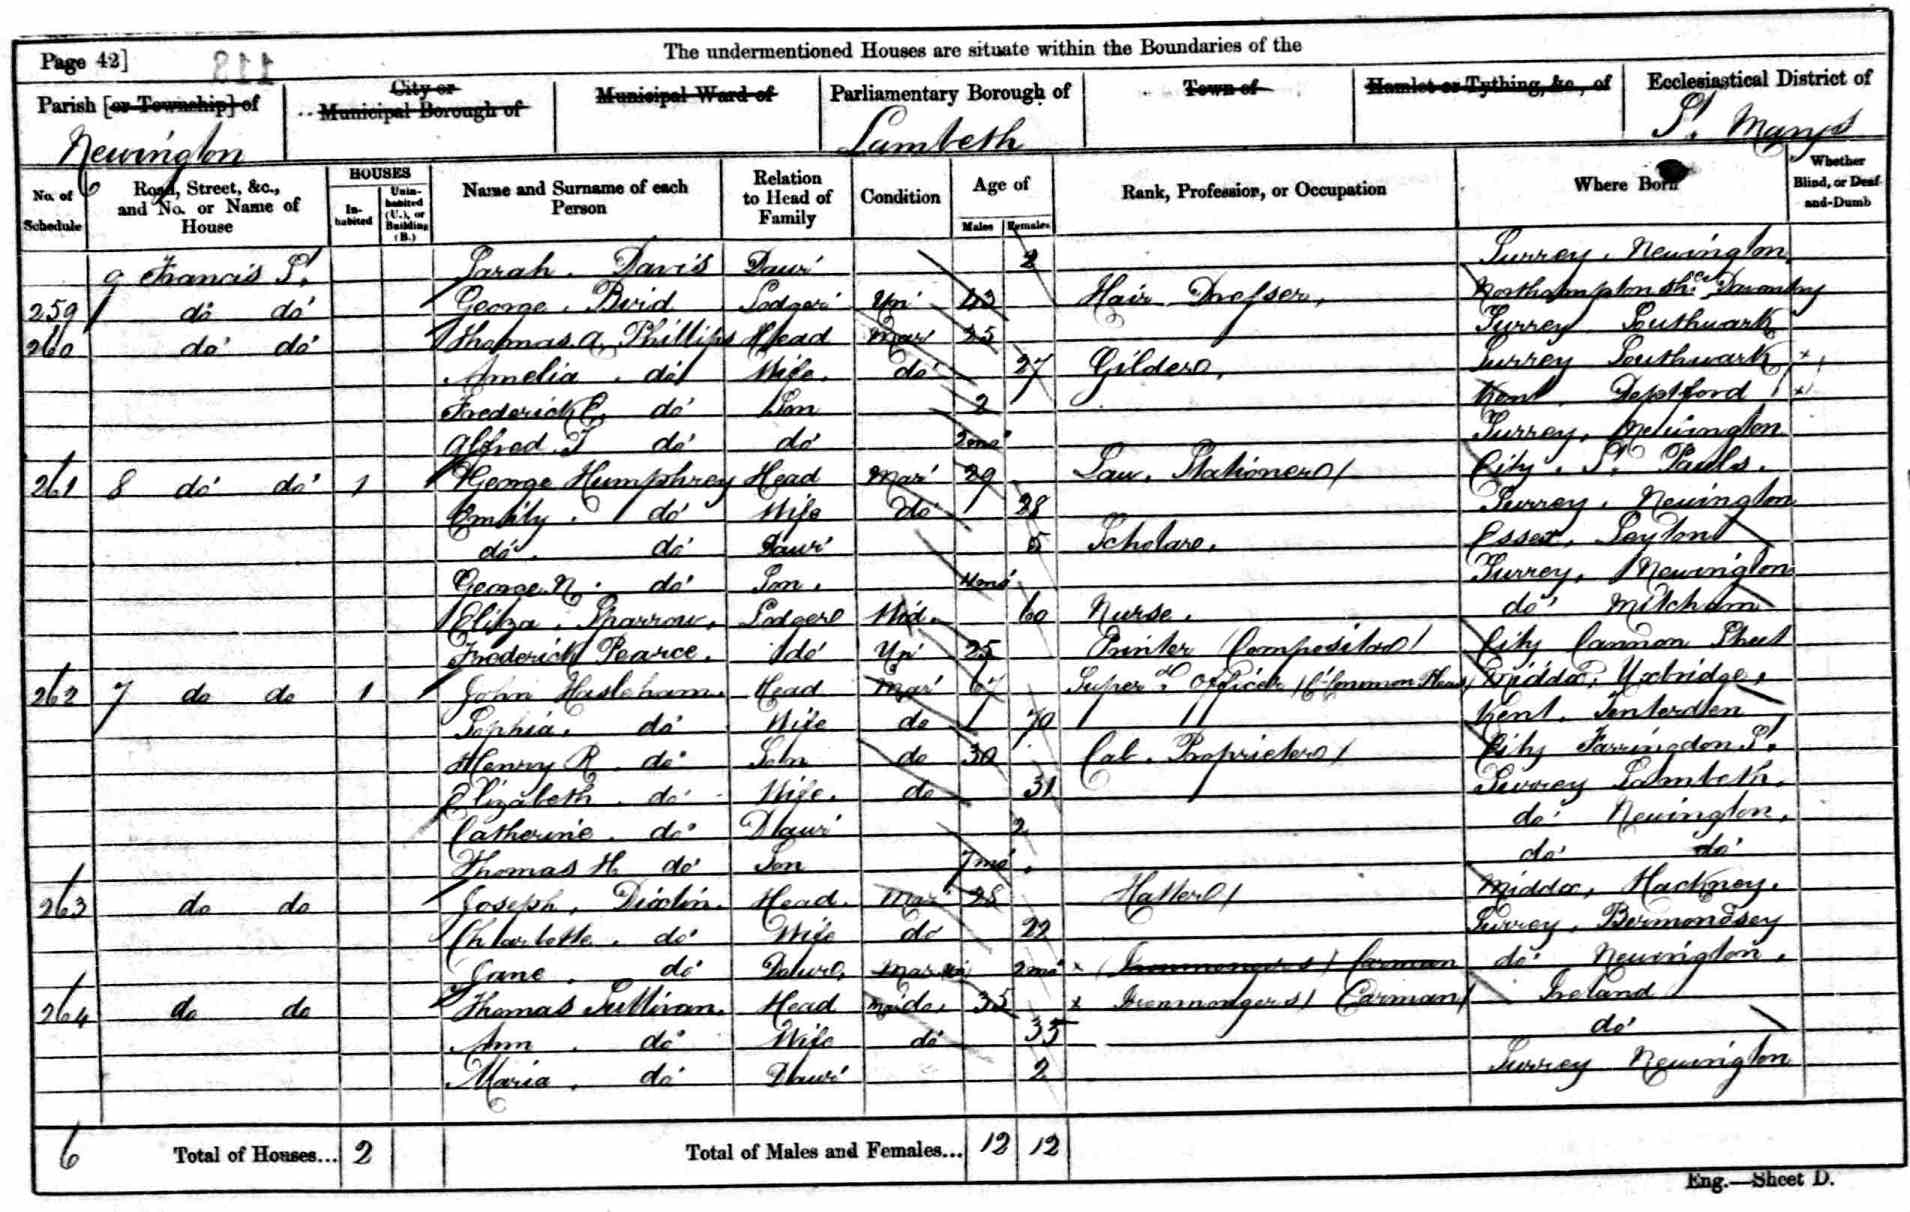 Page 42]
The undermentioned Houses are situate within the Boundaries of the
Parish [or Township] of Newington
City or Municipal Borough of
Municipal Ward of
Parliamentary Borough of Lambeth
Town of
Hamlet or Tything, &c., of
Ecclesiastical District of St. Marys
No. of Schedule
Road, Street, &c., and No. or Name of House
HOUSES
Inhabited
Uninhabited (U.), or Building (B.)
Name and Surname of each Person
Relation to Head of Family
Condition
Age of
Males
Females
Rank, Profession, or Occupation
Where Born
Whether Blind, or Deaf-and-Dumb
9 Francis St. Sarah . Davis Daur 2 Surrey . Newington
259 do do George . Bird Lodger Un 43 Hair Dresser, Northamptonshire Daventry
260 do do Thomas A. Phillips Head Mar 25 Surrey Southwark
Amelia . do Wife . do 27 Gilder, Surrey Southwark
Frederick C. do Son 2 Kent . Deptford
Alfred . T do do 2mo Surrey, Newington
261 8 do do 1 George Humphrey Head Mar 29 Law . Stationer / City . St. Pauls .
Emily . do Wife do 28 Surrey . Newington
do . do Daur 5 Scholar . Essex, Leyton
George N . do Son . 4mo Surrey, Newington
Eliza . Sparrow, Lodger Wid . 60 Nurse . do Mitcham
Frederick Pearce . do Un 25 Printer (Compositor) City Cannon Street
262 7 do do 1 John Hasleham . Head Mar 67 Super. Officer (C. Common Pleas) Middx, Uxbridge,
Sophia . do Wife do 70 Kent . Tenterden
Henry R . do Son do 30 Cab . Proprietor / City Farringdon St.
Elizabeth . do Wife . do 31 Surrey Lambeth,
Catherine . do Daur 2 do Newington,
Thomas H . do Son 7mo . do do
263 do do Joseph, Dixlin . Head . Mar 28 Hatter / Middx, Hackney .
Charlotte . do Wife do 22 Surrey . Bermondsey
Jane . do Daur, 2mo x (Ironmongers) Carman do Newington .
264 do do Thomas Sullivan . Head Mar do . 35 x Ironmongers / Carman / Ireland
Ann . do Wife do 35 do
Maria . do Daur 2 Surrey Newington
6 Total of Houses... 2 Total of Males and Females... 12 12
Eng.—Sheet D.